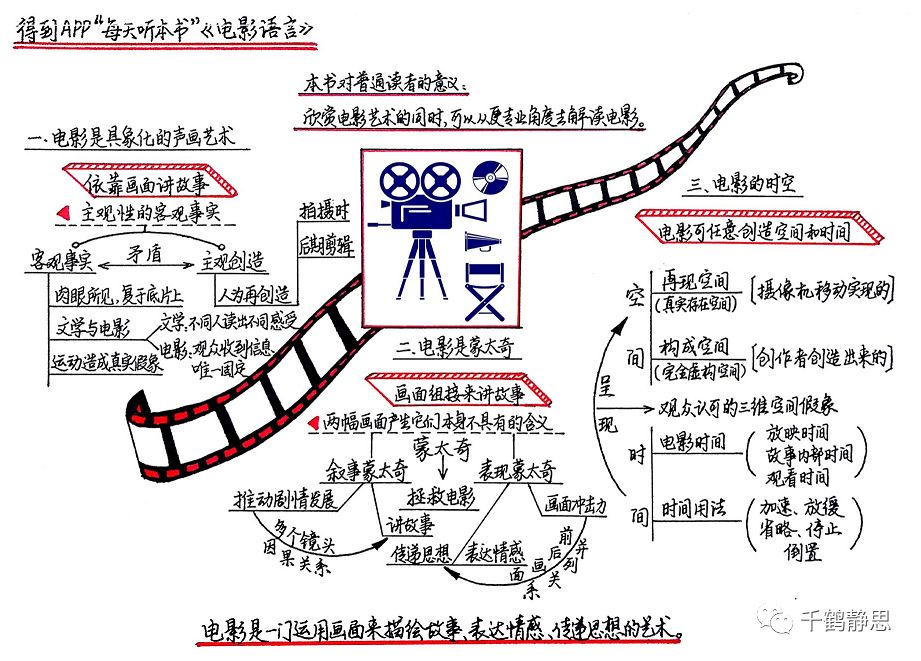 得到APP“每天听本书”《电影语言》
本书对普通读者的意义：
欣赏电影艺术的同时,可以从更专业角度去解读电影。
一、电影是具象化的声画艺术
依靠画面讲故事
主观性的客观事实
客观事实
矛盾
主观创造
拍摄时
后期剪辑
人为再创造
肉眼所见,复于底片上
文学与电影
文学:不同人读出不同感受
电影:观众收到信息、
唯一固定
运动造成真实假象
二、电影是蒙太奇
画面组接来讲故事
两幅画面产生它们本身不具有的含义
蒙太奇
叙事蒙太奇
表现蒙太奇
推动剧情发展
拯救电影
画面冲击力
讲故事
多个镜头
因果关系
传递思想
表达情感
前后画面
并列关系
三、电影的时空
电影可任意创造空间和时间
空间
再现空间
(真实存在空间)
[摄像机移动实现的]
构成空间
(完全虚构空间)
[创作者创造出来的]
呈现
观众认可的三维空间假象
时间
电影时间
放映时间
故事内部时间
观看时间
时间用法
加速、放缓
省略、停止
倒置
电影是一门运用画面来描绘故事、表达情感、传递思想的艺术。
千鹤静思